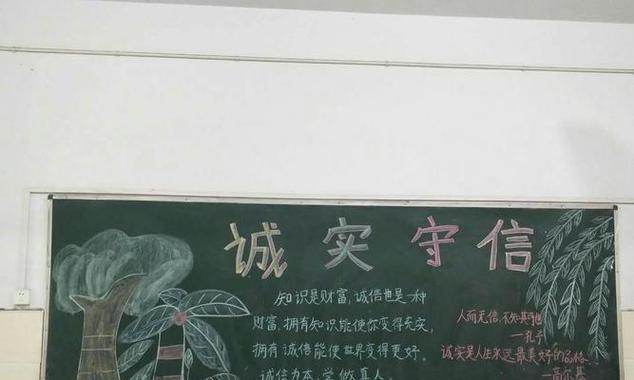 诚实守信
知识是财富,诚信也是一种
财富,拥有知识能使你变得充实,
拥有诚信能使世界变得更好。
诚信为本,学做真人
人而无信,不知其可也
—孔子
诚实是人生永远最美好的品格
—高尔基